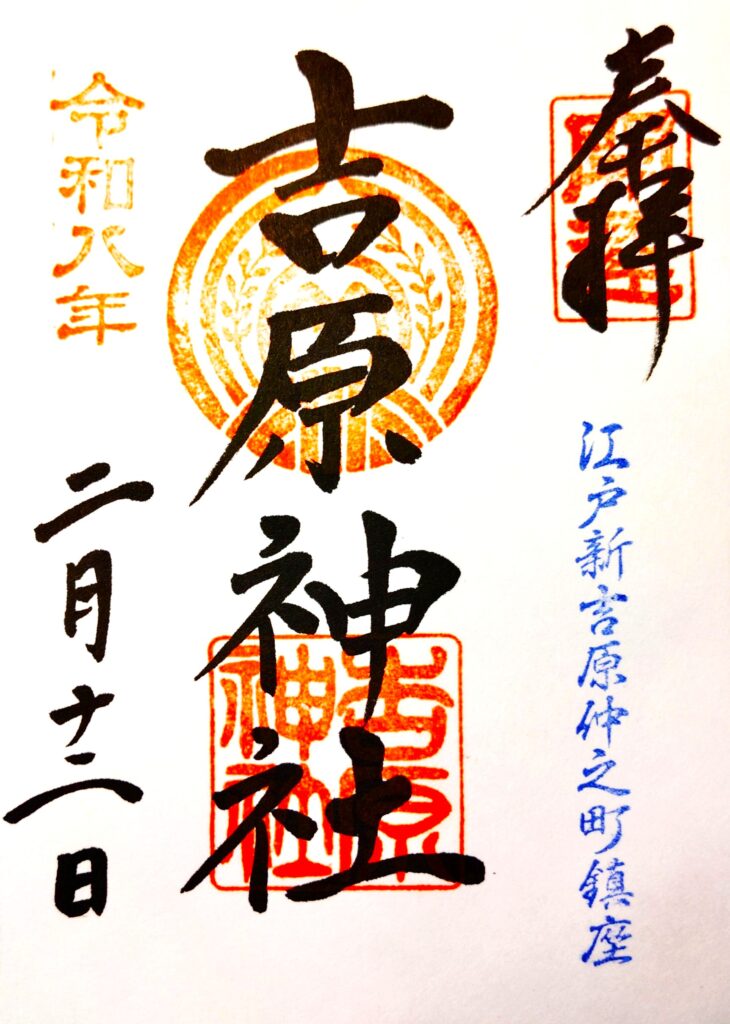 奉拝
江戸新吉原仲之町鎮座
吉原神社
吉原
神社
令和八年
二月十二日